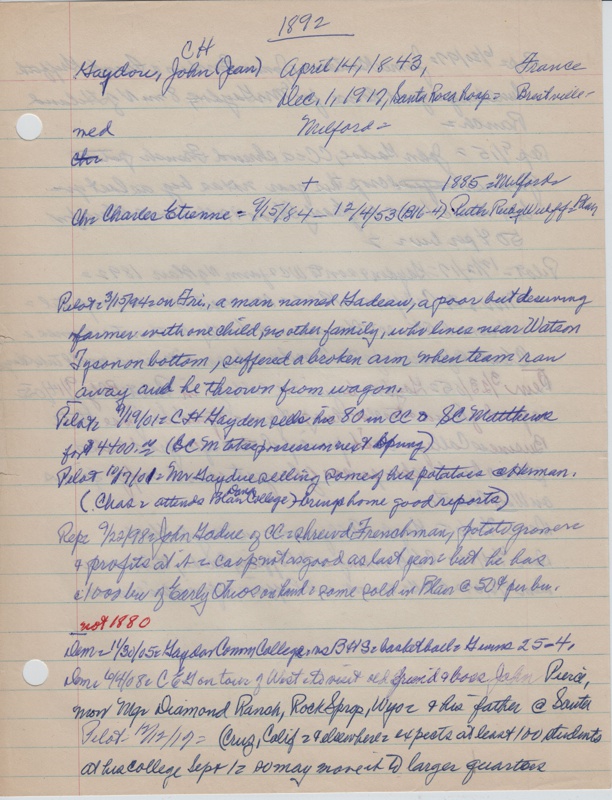 1892
CH
Gaydou, John (Jean) April 14, 1843, France
Dec. 1, 1917, Santa Rosa Hosp = Brestville =
med Milford =
Chr
+ 1885 = Milford
Chr Charles Etienne = 9/15/84 - 12/4/53 (B16-4) Ruth Wulff = Blair
Pilot = 3/15/94 = on Fri., a man named Gadeau, a poor but deserving
farmer with one child, no other family, who lives near Watson
Tyson on bottom, suffered a broken arm when team ran
away and he thrown from wagon.
Pilot = 9/19/01 = CH Gayden sells his 80 in CC to SC Matthews
for $4400. (SC M takes possession next Spring)
Pilot 10/9/01 = Mr Gaydue selling some of his potatoes @ Herman.
(Chas = attends Blair Dana College) + brings home good reports)
Rep = 9/22/98 = John Gadue of CC = shrewd Frenchman, potato grower
+ profits at it = crop not as good as last year = but he has
c 1000 bu of Early Ohios on hand = some sold in Blair @ 50¢ per bu.
not 1880
Dem = 11/30/05 = Gaydon Comm College, vs BHS = basketball = G wins 25-4,
Dem = 6/4/08 = C E G on tour of West to visit old friend & boss John Pierce,
now Mgr Diamond Ranch, Rock Spgs, Wyo = & his father @ Santa
Pilot 12/12/17 = (Cruz, Calif = & elsewhere = expects at least 100 students
at his college Sept 1 = so may move it to larger quarters